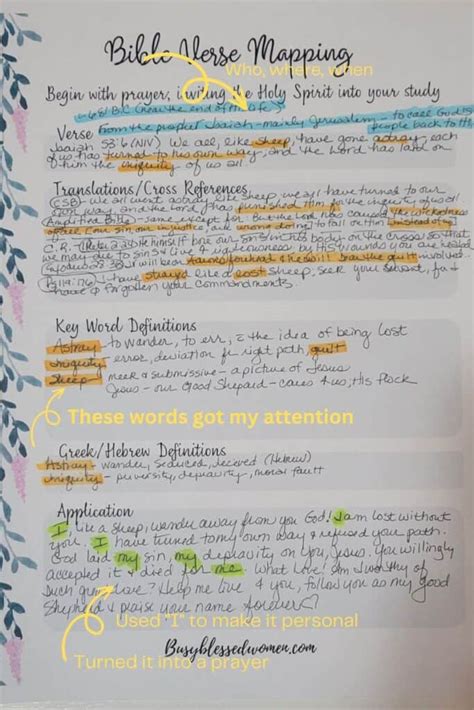 Bible Verse Mapping
Who, where, when
Begin with prayer, inviting the Holy Spirit into your study
from the prophet Isaiah - mainly Jerusalem - to call God's
people back to Him
Verse
Isaiah 53:6 (NIV) We all, like sheep, have gone astray, each
of us has turned to his own way, and the Lord has laid on
him the iniquity of us all.
Translations/Cross References
(CSB) - we all went astray like sheep, we all have turned to our
own way and the Lord has punished him for the iniquity of us all.
Amplified Bible - same except for - But the Lord has caused the wickedness
of us all (our sin, our injustice, our wrong doing) to fall on Him instead of
He himself bore our sins in his body on the cross so that
we may die to sin & live to righteousness, by His wounds you are healed
Ps 119:176) I have strayed like a lost sheep, seek your servant, for I
have forgotten your commandments.
Key Word Definitions
Astray - to wander, to err, the idea of being lost
Iniquity - error, deviation from right path, guilt
Sheep - meek & submissive - a picture of Jesus
Jesus - our Good Shepard - cares for us, His flock
These words got my attention
Greek/Hebrew Definitions
Astray - wander, seduced, deceived (Hebrew)
Iniquity - perversity, depravity, moral fault
Application
I, like a sheep, wander away from you God! I am lost without
you. I have turned to my own way & refused your path.
God laid my sin, my depravity on you, Jesus. You willingly
accepted it & died for me. What love! Am I worthy of
such great love? Help me live for you, follow you as my good
Shepherd & praise your name forever
Used "I" to make it personal
Turned it into a prayer
Busyblessedwomen.com